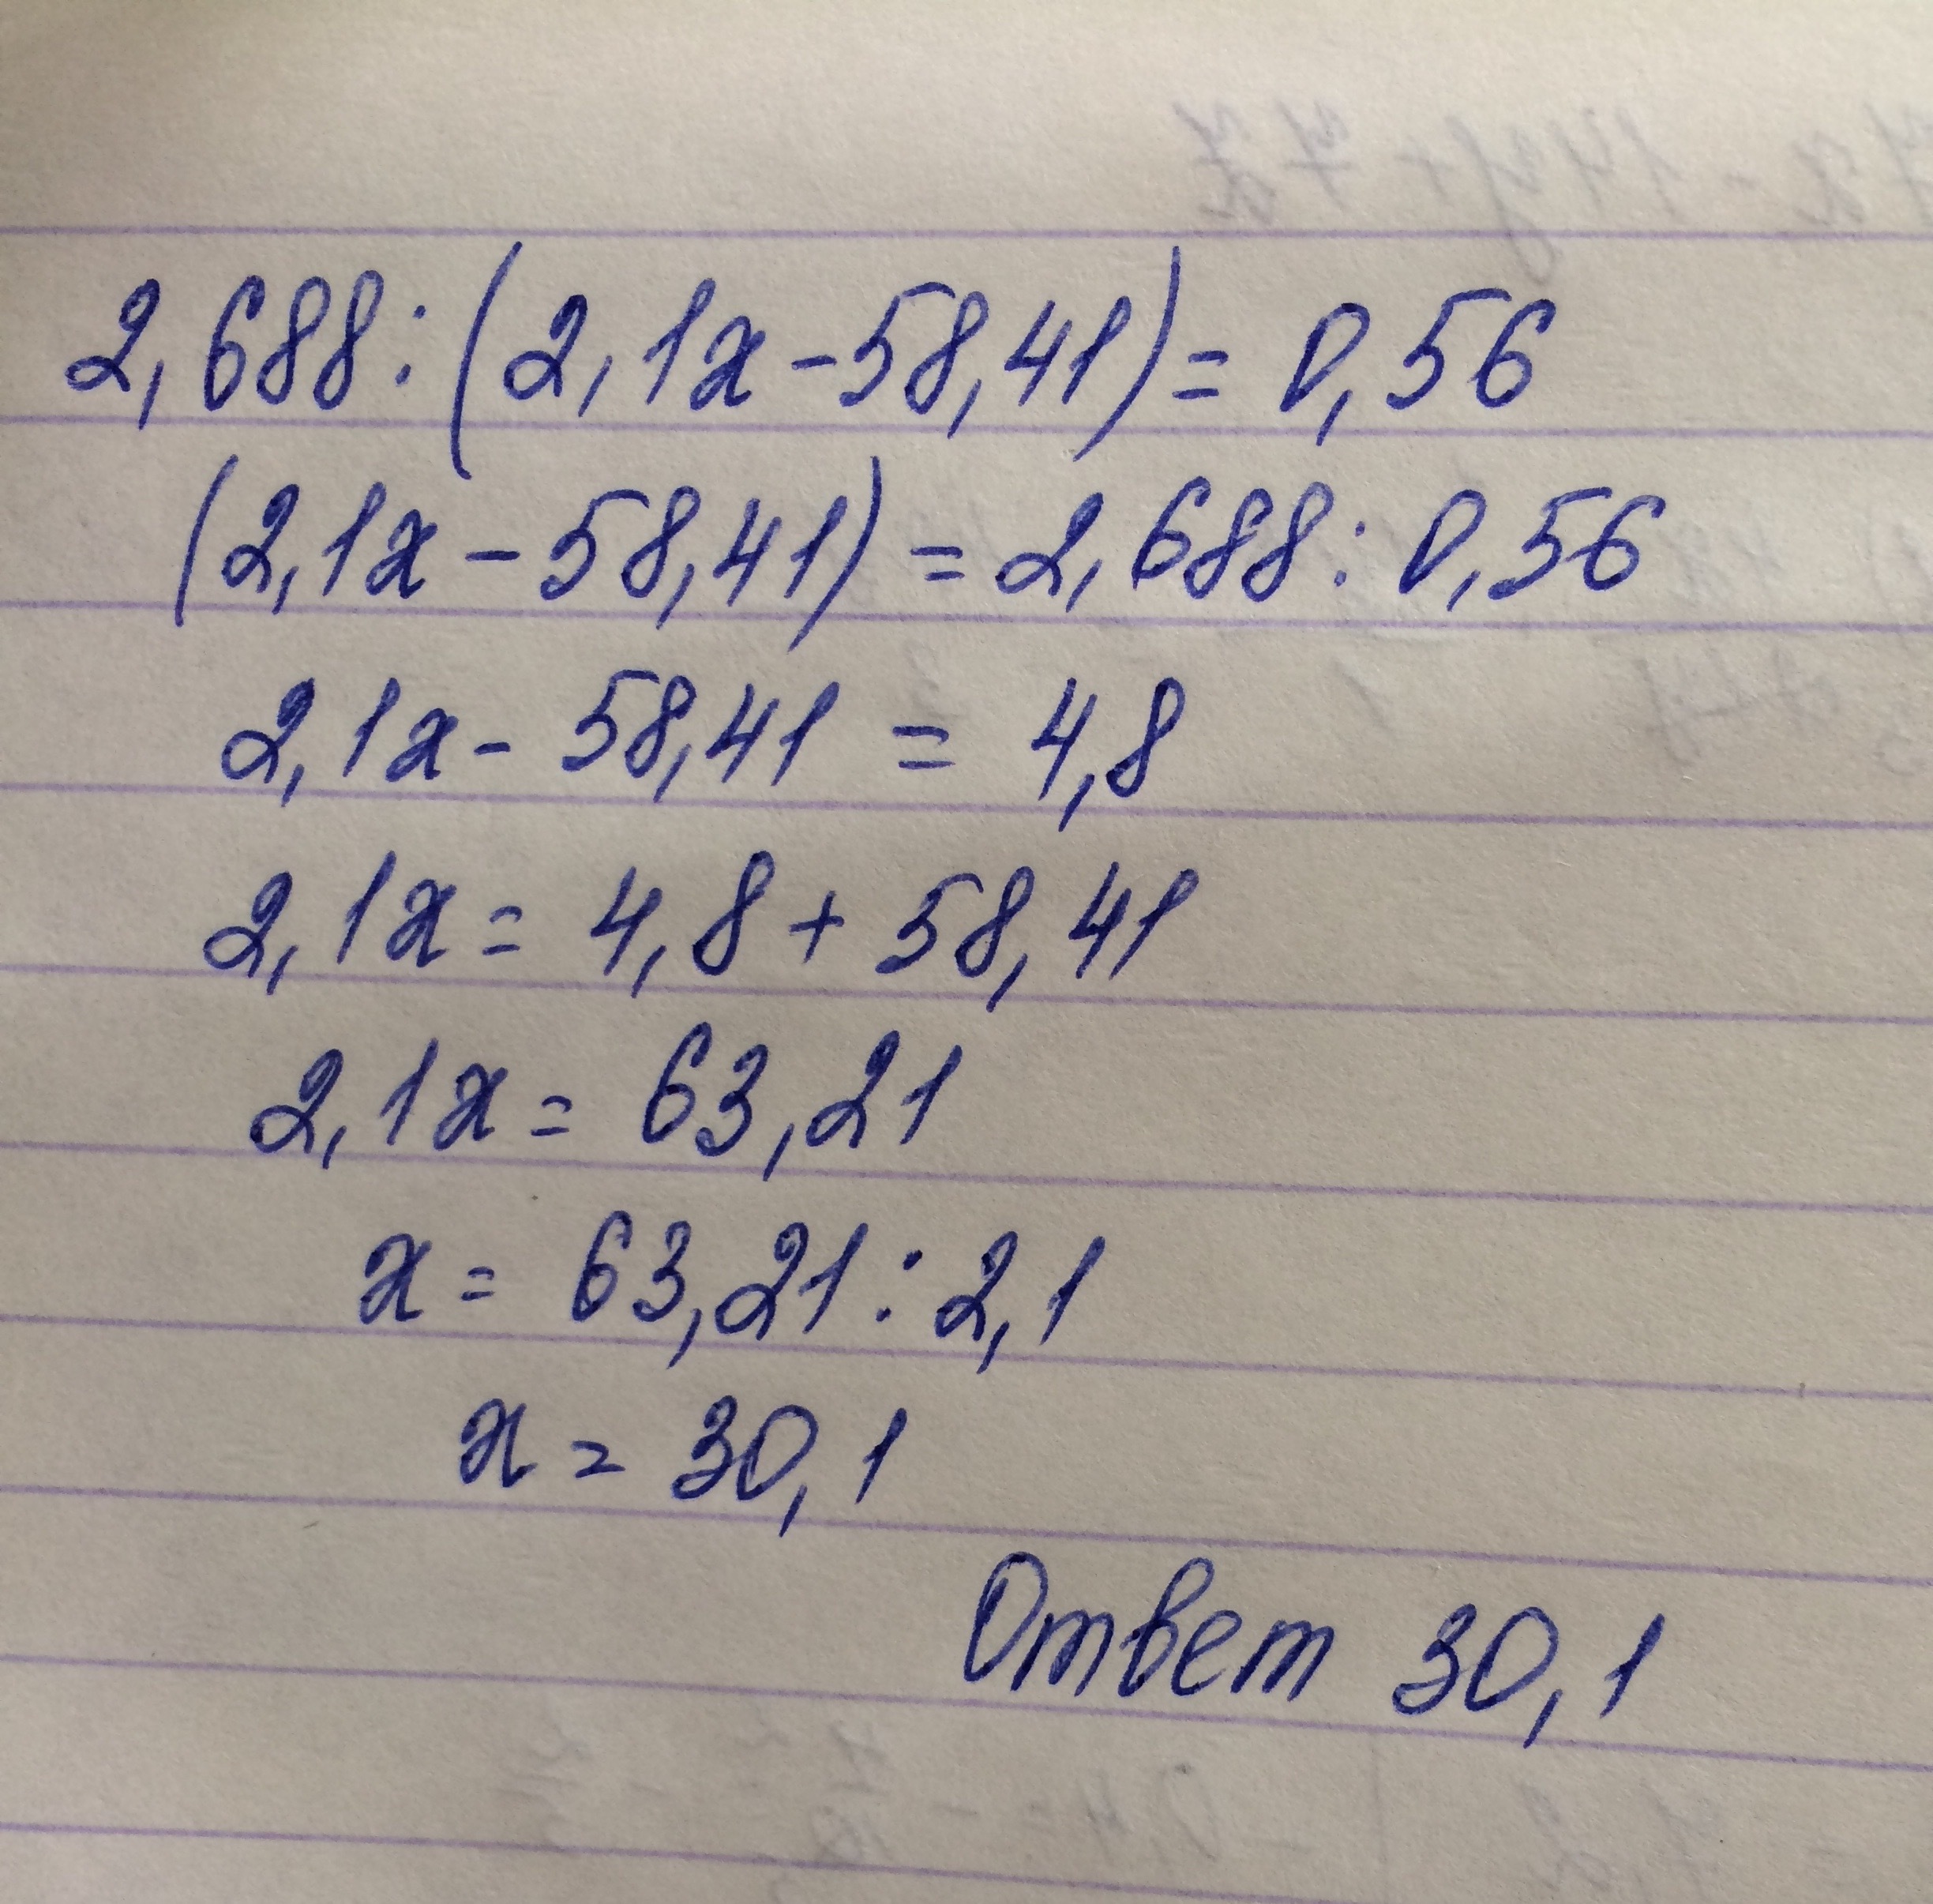 2,688:(2,1x-58,41)=0,56
(2,1x-58,41)=2,688:0,56
2,1x-58,41=4,8
2,1x=4,8+58,41
2,1x=63,21
x=63,21:2,1
x=30,1
Ответ 30,1